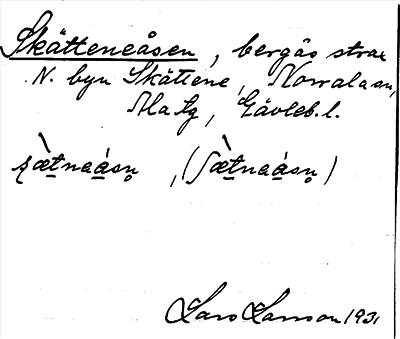 Skätteneåsen, bergås strax
N. byn Skättene, Norrala sn,
Ala tg, Gävleb. l.
ʂæ̀t̲naá̲sn̥, (ʃæ̀t̲naá̲sn̥)
Lars Larsson 1931